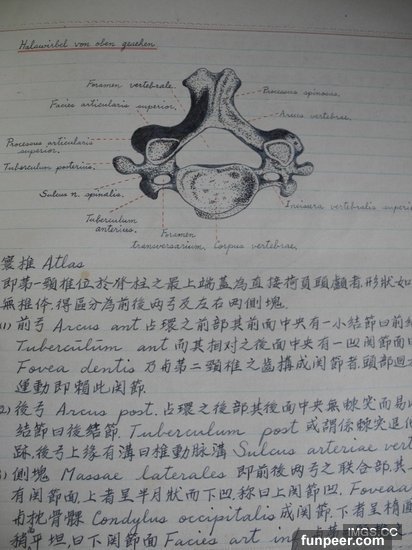 Halswirbel von oben gesehen.
Foramen vertebrale.
Facies articularis superior.
Processus spinosus.
Arcus vertebrae.
Processus articularis superior.
Tuberculum posterius.
Sulcus n. spinalis.
Tuberculum anterius.
Foramen transversarium.
Corpus vertebrae.
Incisura vertebralis superio
寰椎 Atlas
即第一頸椎位於脊柱之最上端蓋為直接荷負頭顱者,形狀如
無椎体,得區分為前後兩弓及左右兩側塊.
(1) 前弓 Arcus ant 占環之前部其前面中央有一小結節曰前結
Tuberculum ant 而其相对之後面中央有一凹关節面曰
Fovea dentis 乃与第二頸椎之齒構成关節者,頭部廻
運動即賴此关節.
2) 後弓 Arcus post. 占環之後部其後面中央無棘突而易以
結節曰後結節. Tuberculum post 或謂係棘突退化
跡.後弓上緣有溝曰椎動脉溝 Sulcus arteriae vert
3) 側塊 Massae laterales 即前後两弓之联合部,其
有关節面,上者呈半月狀而下凹,称曰上关節凹, Foveaa
与枕骨髁 Condylus occipitalis 成关節,下者呈橢
稍平坦,曰下关節面 Facies art inf
IMGS.CC
funpeer.com